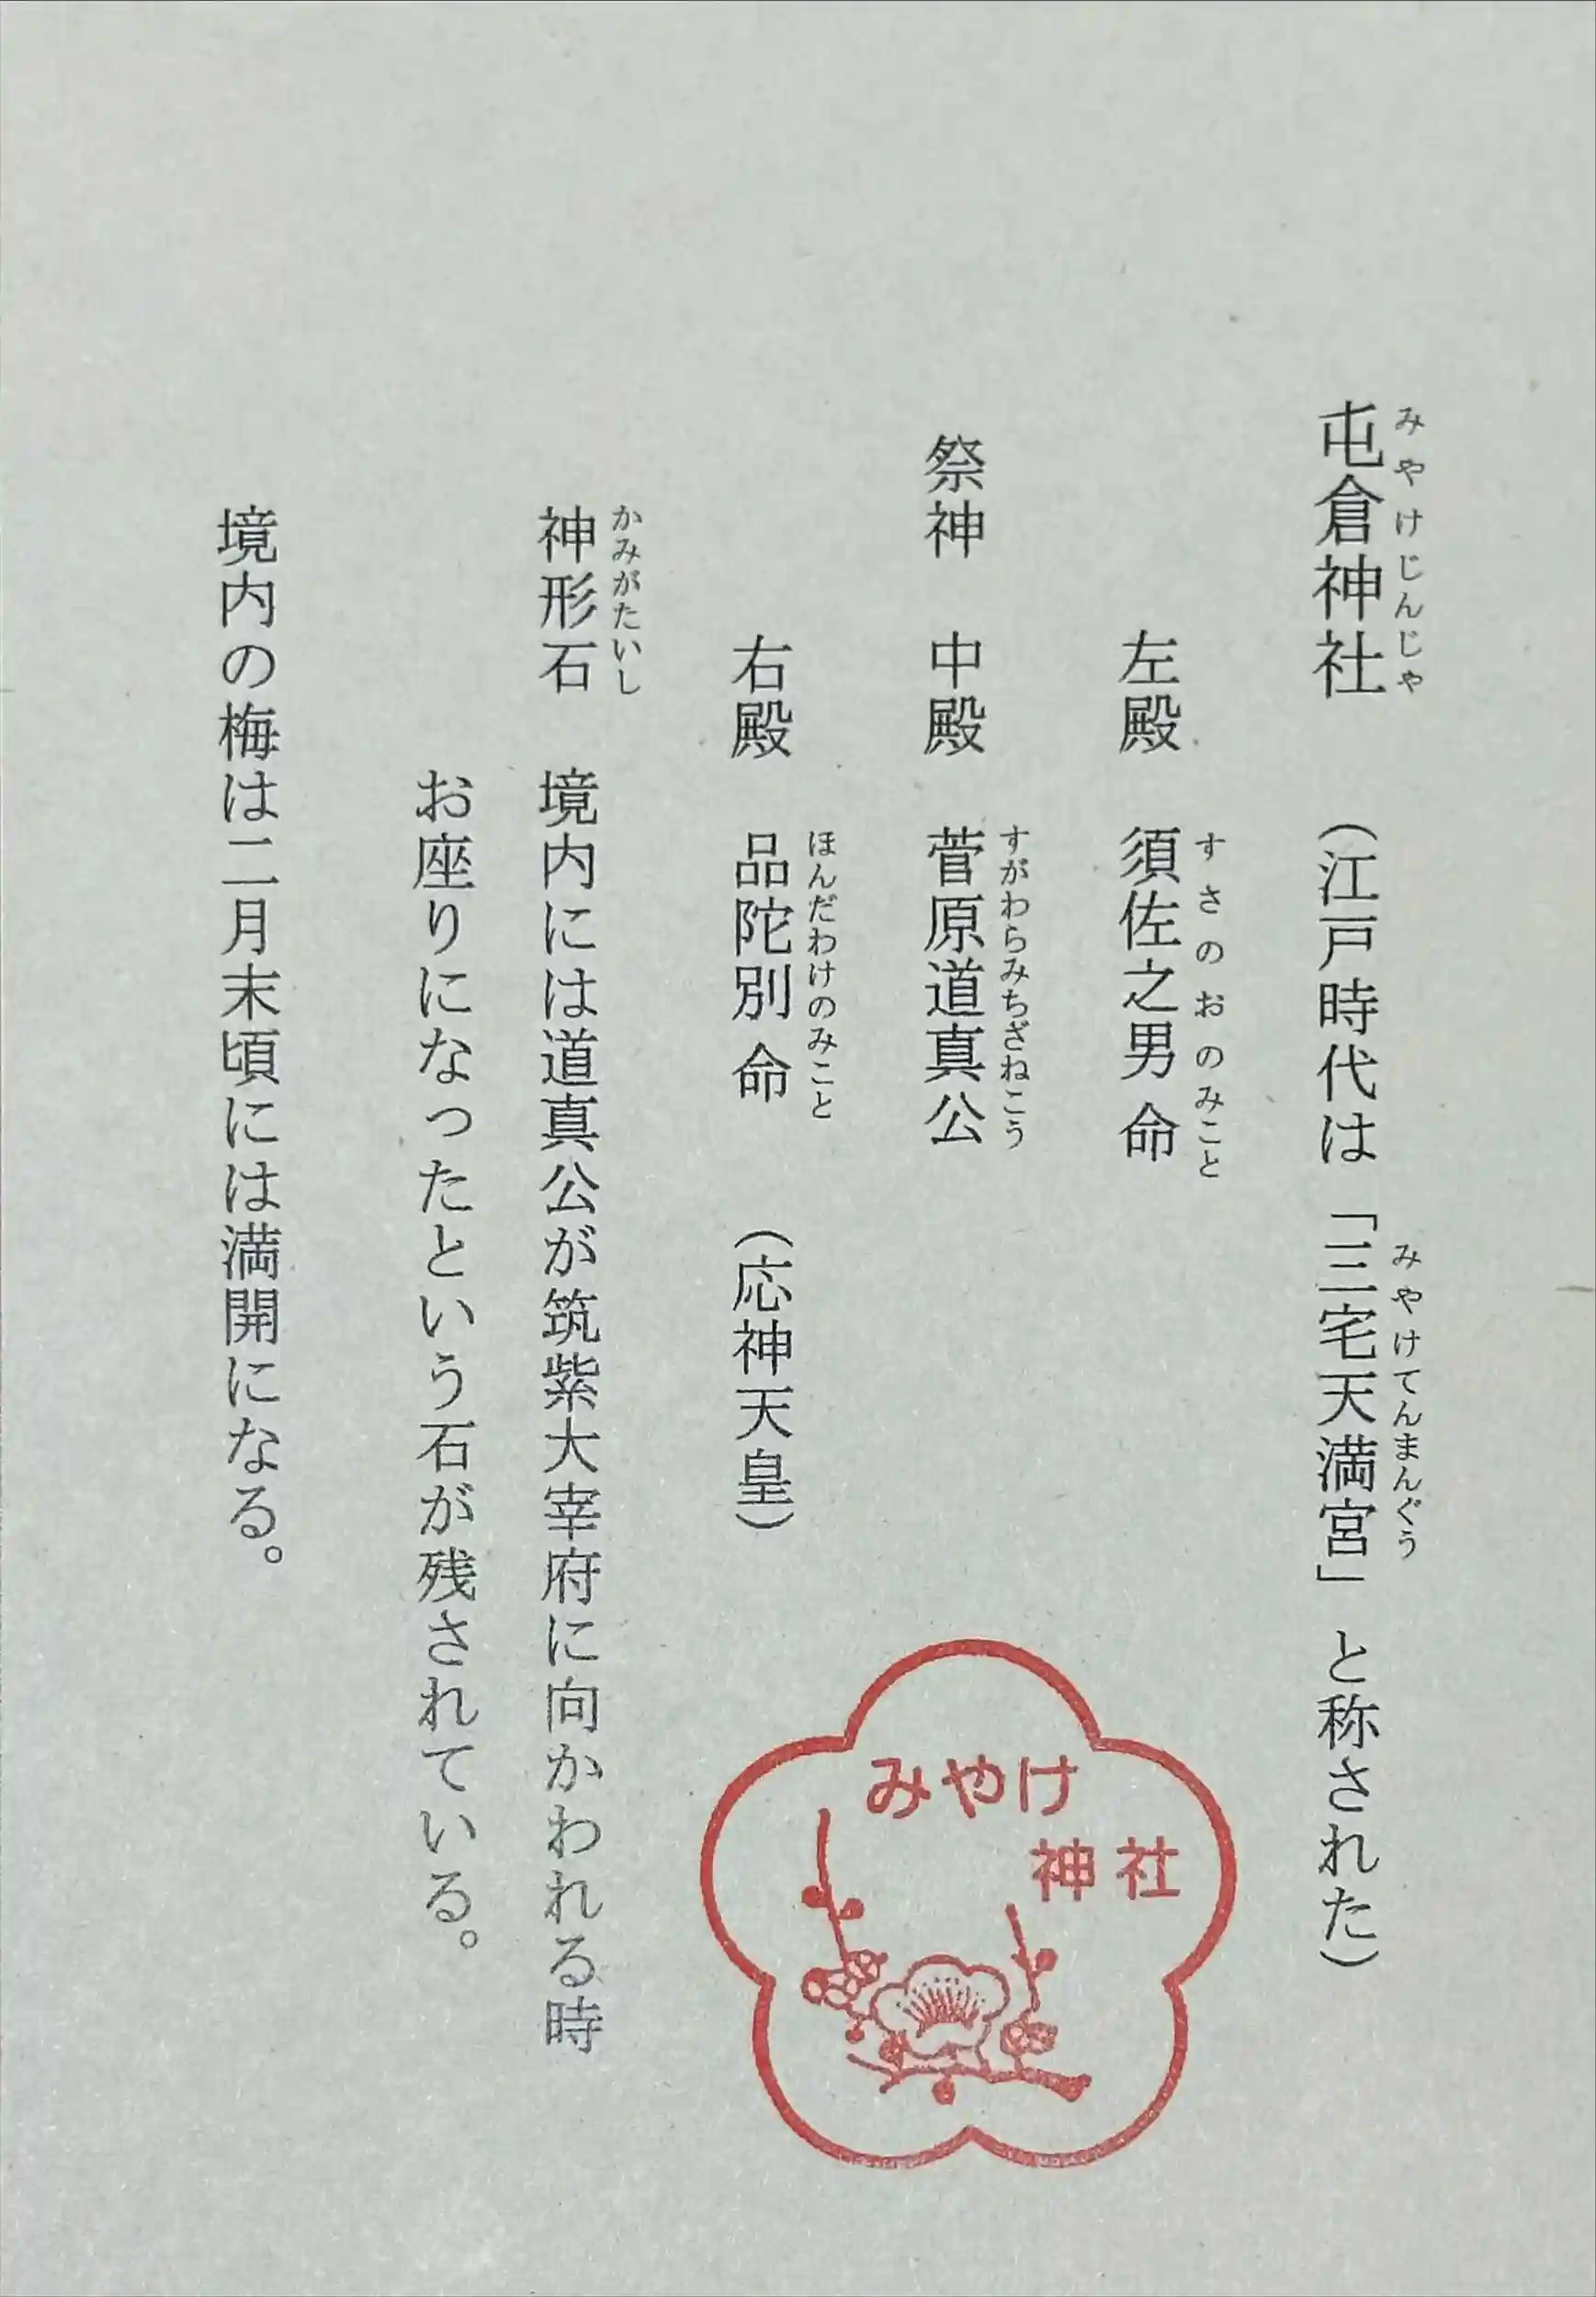 屯倉神社 (江戸時代は「三宅天満宮」と称された)
みやけじんじゃ
みやけてんまんぐう
左殿 須佐之男命
すさのおのみこと
祭神 中殿 菅原道真公
すがわらみちざねこう
右殿 品陀別命 (応神天皇)
ほんだわけのみこと
神形石 境内には道真公が筑紫大宰府に向かわれる時
かみがたいし
お座りになったという石が残されている。
境内の梅は二月末頃には満開になる。
みやけ
神社